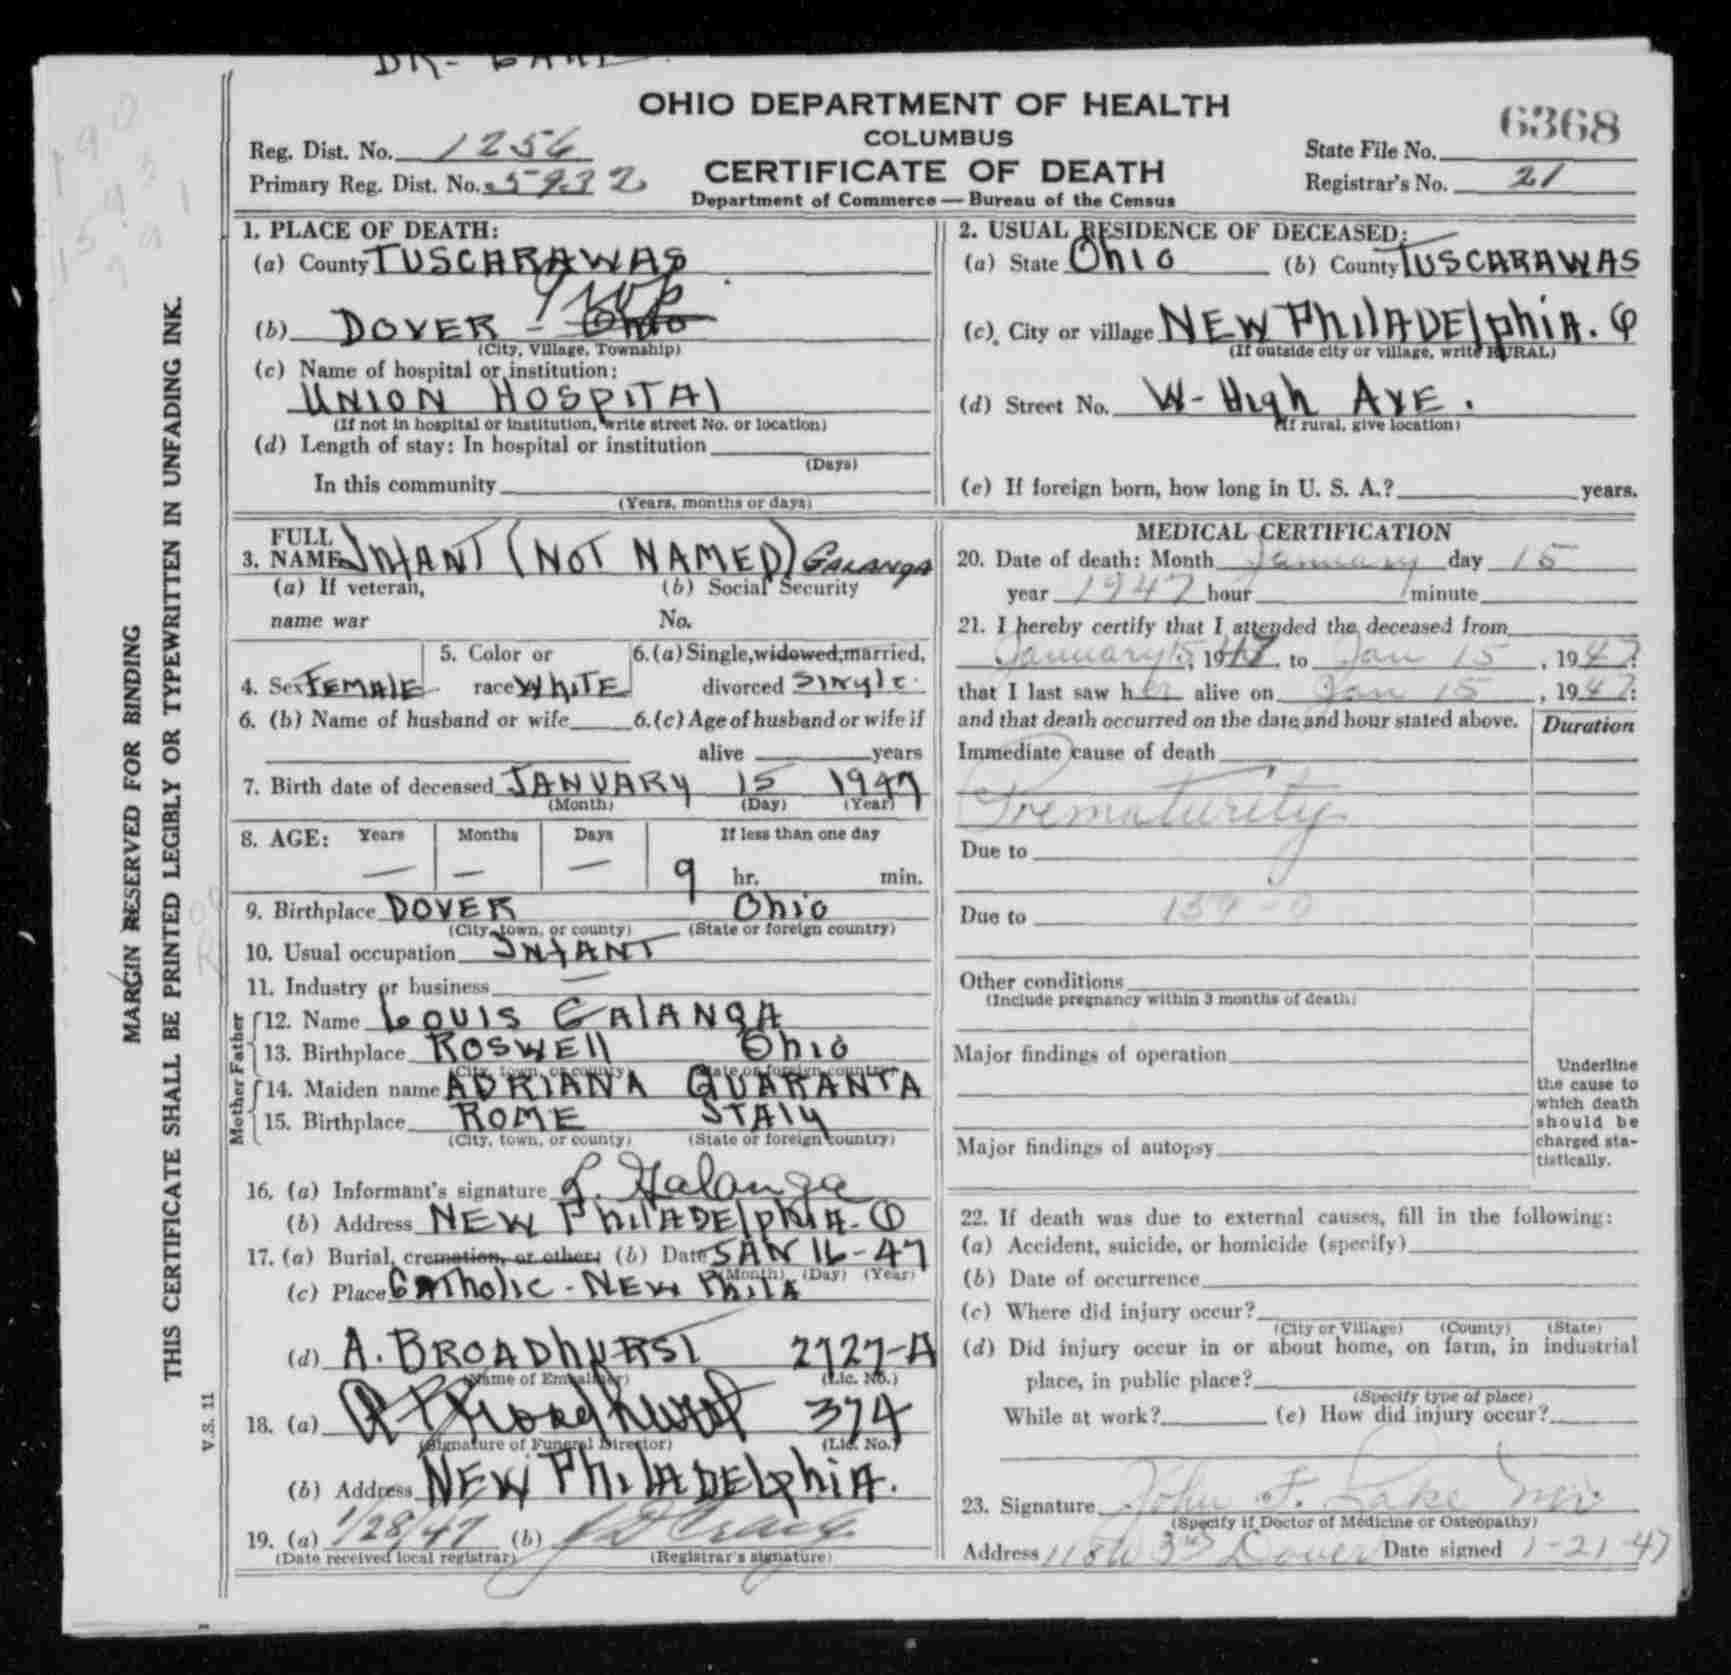 OHIO DEPARTMENT OF HEALTH
COLUMBUS
CERTIFICATE OF DEATH
Department of Commerce — Bureau of the Census
Reg. Dist. No. 1256
Primary Reg. Dist. No. 5932
6368
State File No.
Registrar's No. 21
MARGIN RESERVED FOR BINDING
THIS CERTIFICATE SHALL BE PRINTED LEGIBLY OR TYPEWRITTEN IN UNFADING INK.
V.S. 11
1. PLACE OF DEATH:
(a) County TUSCARAWAS
Twp
(b) DOVER - Ohio
(City, Village, Township)
(c) Name of hospital or institution:
UNION HOSPITAl
(If not in hospital or institution, write street No. or location)
(d) Length of stay: In hospital or institution
(Days)
In this community
(Years, months or days)
2. USUAL RESIDENCE OF DECEASED:
(a) State Ohio (b) County TUSCARAWAS
(c) City or village NEW PhilADElphiA. O
(If outside city or village, write RURAL)
(d) Street No. W- High AVE.
(If rural, give location)
(e) If foreign born, how long in U. S. A.? years.
3. FULL NAME INfANT (NOT NAMED) GALANGA
(a) If veteran, (b) Social Security
name war No.
4. Sex FEMAlE 5. Color or race WhiTE 6. (a) Single, widowed, married, divorced Single.
6. (b) Name of husband or wife 6. (c) Age of husband or wife if
alive years
7. Birth date of deceased JANUARy 15 1947
(Month) (Day) (Year)
8. AGE: Years Months Days If less than one day
— — — 9 hr. min.
9. Birthplace DOVER Ohio
(City, town, or county) (State or foreign country)
10. Usual occupation INfANT
11. Industry or business —
Father
12. Name LOUIS GAlANGA
13. Birthplace ROSWEll Ohio
(City, town, or county) (State or foreign country)
Mother
14. Maiden name ADRIANA QUARANTA
15. Birthplace ROME ITAly
(City, town, or county) (State or foreign country)
16. (a) Informant's signature L. Galanga
(b) Address NEW PhilADElphiA. O
17. (a) Burial, cremation, or other; (b) Date JAN 16-47
(Month) (Day) (Year)
(c) Place CAThOlic - NEW PhilA
(d) A. BROADhURST 2727-A
(Name of Embalmer) (Lic. No.)
18. (a) Broadhurst 374
(Signature of Funeral Director) (Lic. No.)
(b) Address NEW PhilADElphiA.
19. (a) 1/28/47 (b)
(Date received local registrar) (Registrar's signature)
MEDICAL CERTIFICATION
20. Date of death: Month January day 15
year 1947 hour minute
21. I hereby certify that I attended the deceased from
January 15, 1947, to Jan 15, 1947:
that I last saw her alive on Jan 15, 1947:
and that death occurred on the date and hour stated above. Duration
Immediate cause of death
Prematurity
Due to
Due to 159-0
Other conditions
(Include pregnancy within 3 months of death)
Major findings of operation
Major findings of autopsy
Underline
the cause to
which death
should be
charged sta-
tistically.
22. If death was due to external causes, fill in the following:
(a) Accident, suicide, or homicide (specify)
(b) Date of occurrence
(c) Where did injury occur?
(City or Village) (County) (State)
(d) Did injury occur in or about home, on farm, in industrial
place, in public place?
(Specify type of place)
While at work? (e) How did injury occur?
23. Signature John F. Lake
(Specify if Doctor of Medicine or Osteopathy)
Address 118 W 3rd Dover Date signed 1-21-47